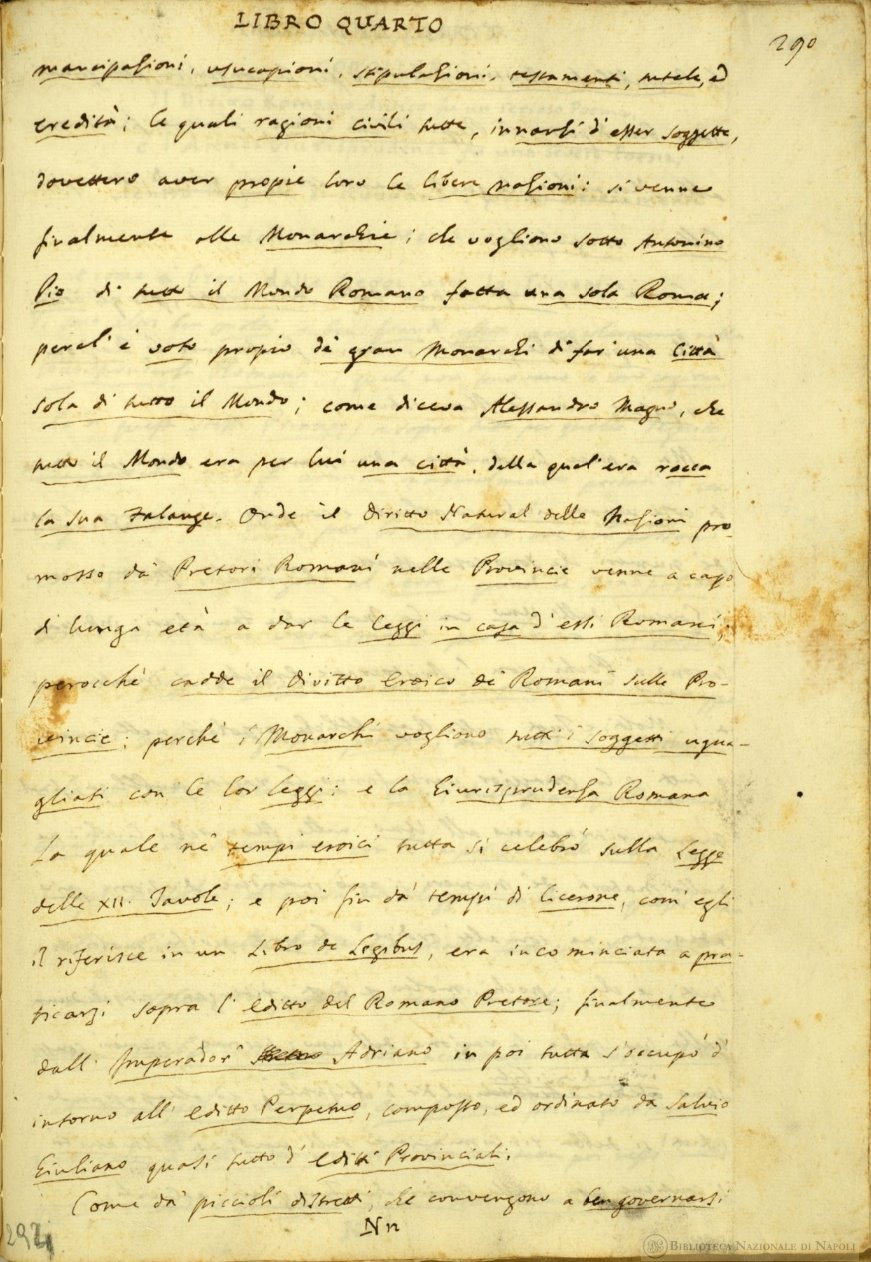 LIBRO QUARTO
290
mancipaſioni, usucapioni, stipulaſioni, testamenti, tutele, ed
eredità; le quali ragioni civili tutte, innanſi d'esser soggette,
dovettero aver propie loro le libere naſioni: si venne
finalmente alle Monarchie; che vogliono sotto Antonino
Pio di tutto il Mondo Romano fatta una sola Roma;
perch'è voto propio de' gran Monarchi di far' una Città
sola di tutto il Mondo; come diceva Alessandro Magno, che
tutto il Mondo era per lui una città, della qual'era rocca
la sua Falange. Onde il diritto Natural delle Naſioni pro
mosso da' Pretori Romani nelle Provincie venne a capo
di lunga età a dar le leggi in casa d'essi Romani;
perocchè cadde il diritto eroico de' Romani sulle Pro-
vincie; perchè i Monarchi vogliono tutti i soggetti ugua-
gliati con le lor leggi: e la Giurisprudenſa Romana
La quale ne' tempi eroici tutta si celebrò sulla Legge
delle XII. Tavole; e poi fin da' tempi di Cicerone, com'egli
il riferisce in un Libro de Legibus, era incominciata a pra-
ticarsi sopra l'editto del Romano Pretore; finalmente
dall' Imperador' Adriano in poi tutta s'occupò d'
intorno all' editto Perpetuo, composto, ed ordinato da Salvio
Giuliano quasi tutto d' editti Provinciali.
Come da' piccioli distretti, che convengono a ben governarsi
Nn
294
BIBLIOTECA NAZIONALE DI NAPOLI